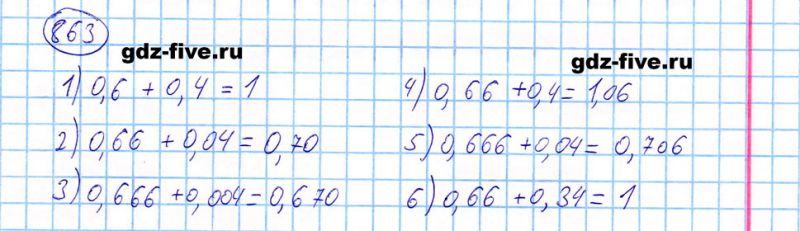 863
gdz-five.ru
gdz-five.ru
1) 0,6 + 0,4 = 1
2) 0,66 + 0,04 = 0,70
3) 0,666 + 0,004 = 0,670
4) 0,66 + 0,4 = 1,06
5) 0,666 + 0,04 = 0,706
6) 0,66 + 0,34 = 1